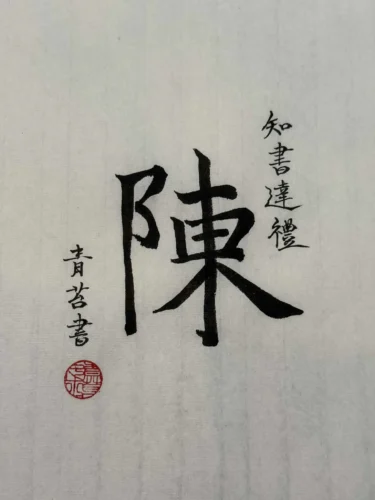 知書達禮
陳
青苔書